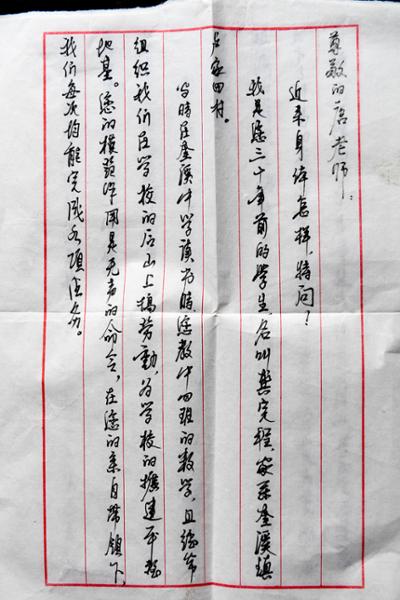 尊敬的唐老师：
近来身体怎样，特问！
我是您三十年前的学生，名叫龚完程，家系奎溪镇
田村。
当时在奎溪中学读书时，您教中四班的数学，且经常
组织我们在学校的后山上搞劳動，为学校的擴建平整
地基。您的模范作用是无声的命令，在您的亲自带领下，
我们每次均能完成各项任务。